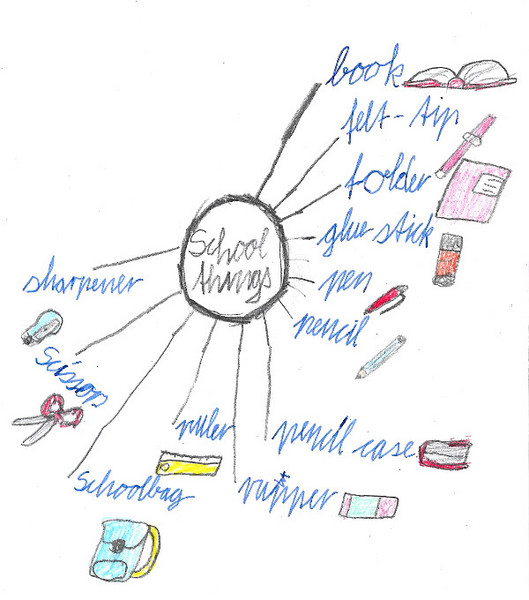 School
things
book
felt-tip
folder
glue stick
pen
pencil
pencil case
ruler
Schoolbag
Scissors
sharpener